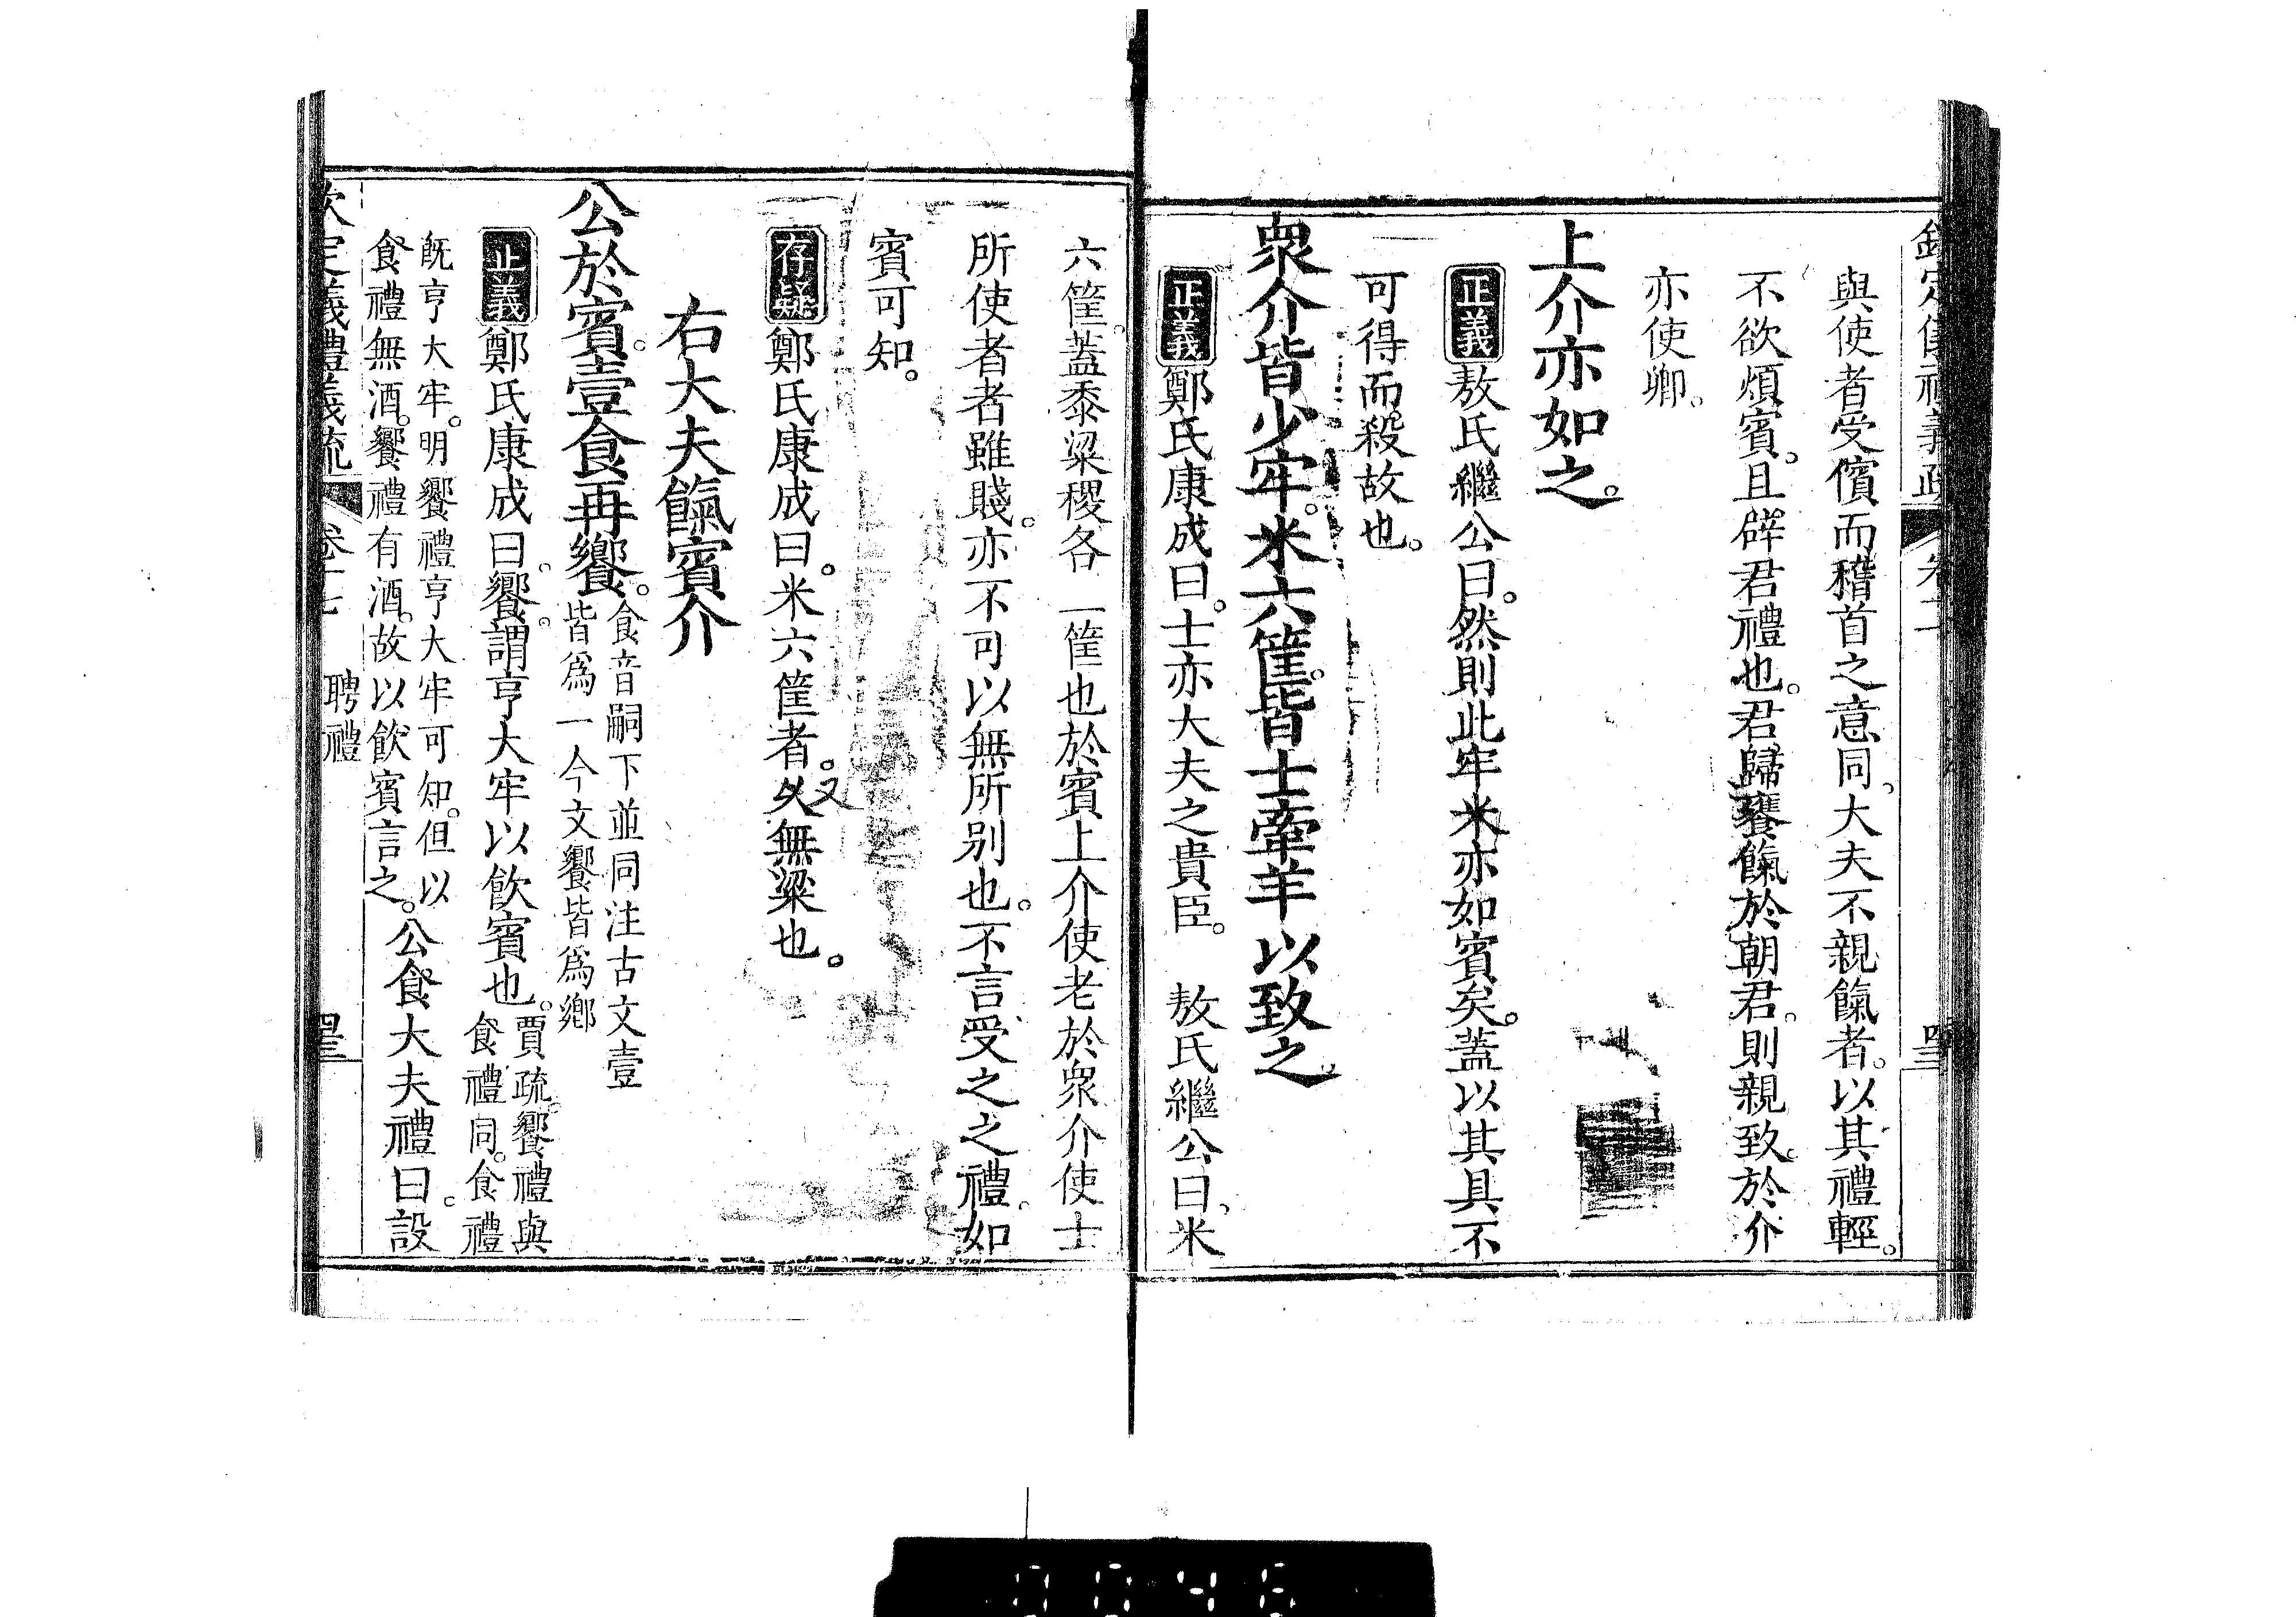 與使者受儐而稽首之意同。大夫不親餼者。以其禮輕。
不欲煩賓。且辟君禮也。君歸饔餼於朝君。則親致。於介
亦使卿。
上介亦如之。
正義敖氏繼公曰。然則此牢米亦如賓矣。蓋以其具不
可得而殺故也。
衆介皆少牢。米六筐。皆士牽羊以致之。
正義鄭氏康成曰。士亦大夫之貴臣。　敖氏繼公曰。米
六筐。蓋黍粱稷各一筐也於賓上介使老於衆介使士
所使者者雖賤。亦不可以無所别也。不言受之之禮。如
賓可知。
存疑鄭氏康成曰。米六筐者。又無粱也。
右大夫餼賓介
公於賓。壹食再饗。
食音嗣下並同注古文壹
皆爲一今文饗皆爲鄉
正義鄭氏康成曰。饗。謂亨大牢以飲賓也。
賈疏。饗禮與
食禮同。食禮
既亨大牢。明饗禮亨大牢可知。但以
食禮無酒。饗禮有酒。故以飲賓言之。
公食大夫禮曰。設
欽定義禮義疏　卷十七　聘禮